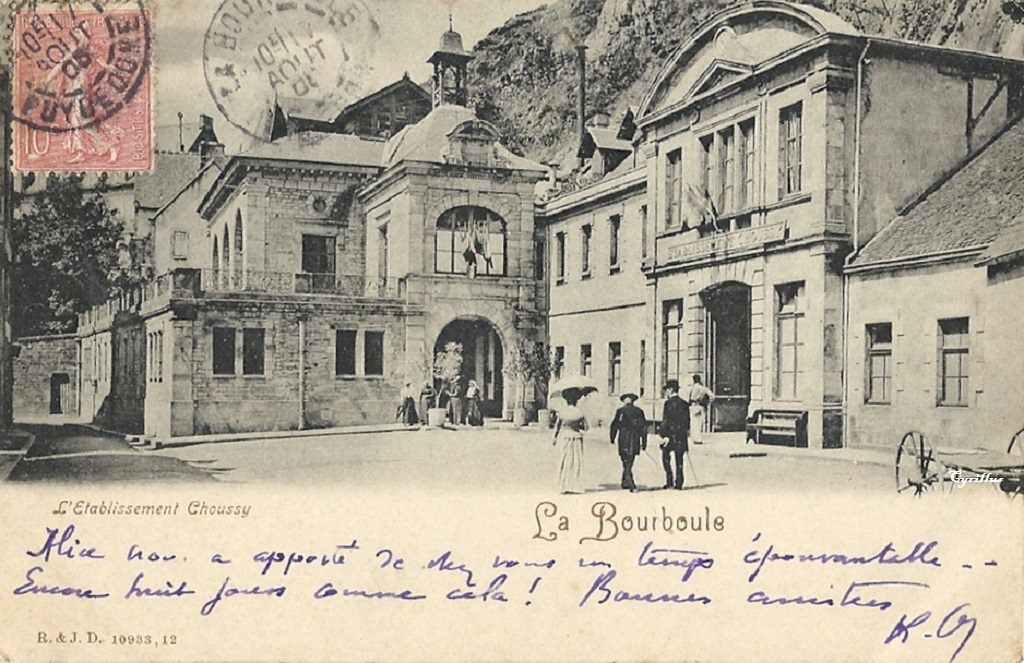 10
POSTES
PUY DE DOME
AOUT
LA BOURBOULE
AOUT
ETABLISSEMENT CHOUSSY
Cyrillus
L'Etablissement Choussy
La Bourboule
Alice nous a apporté de chez vous un temps épouvantable --
Encore huit jours comme cela! Bonnes amitiés
R. & J. D. 10933, 12